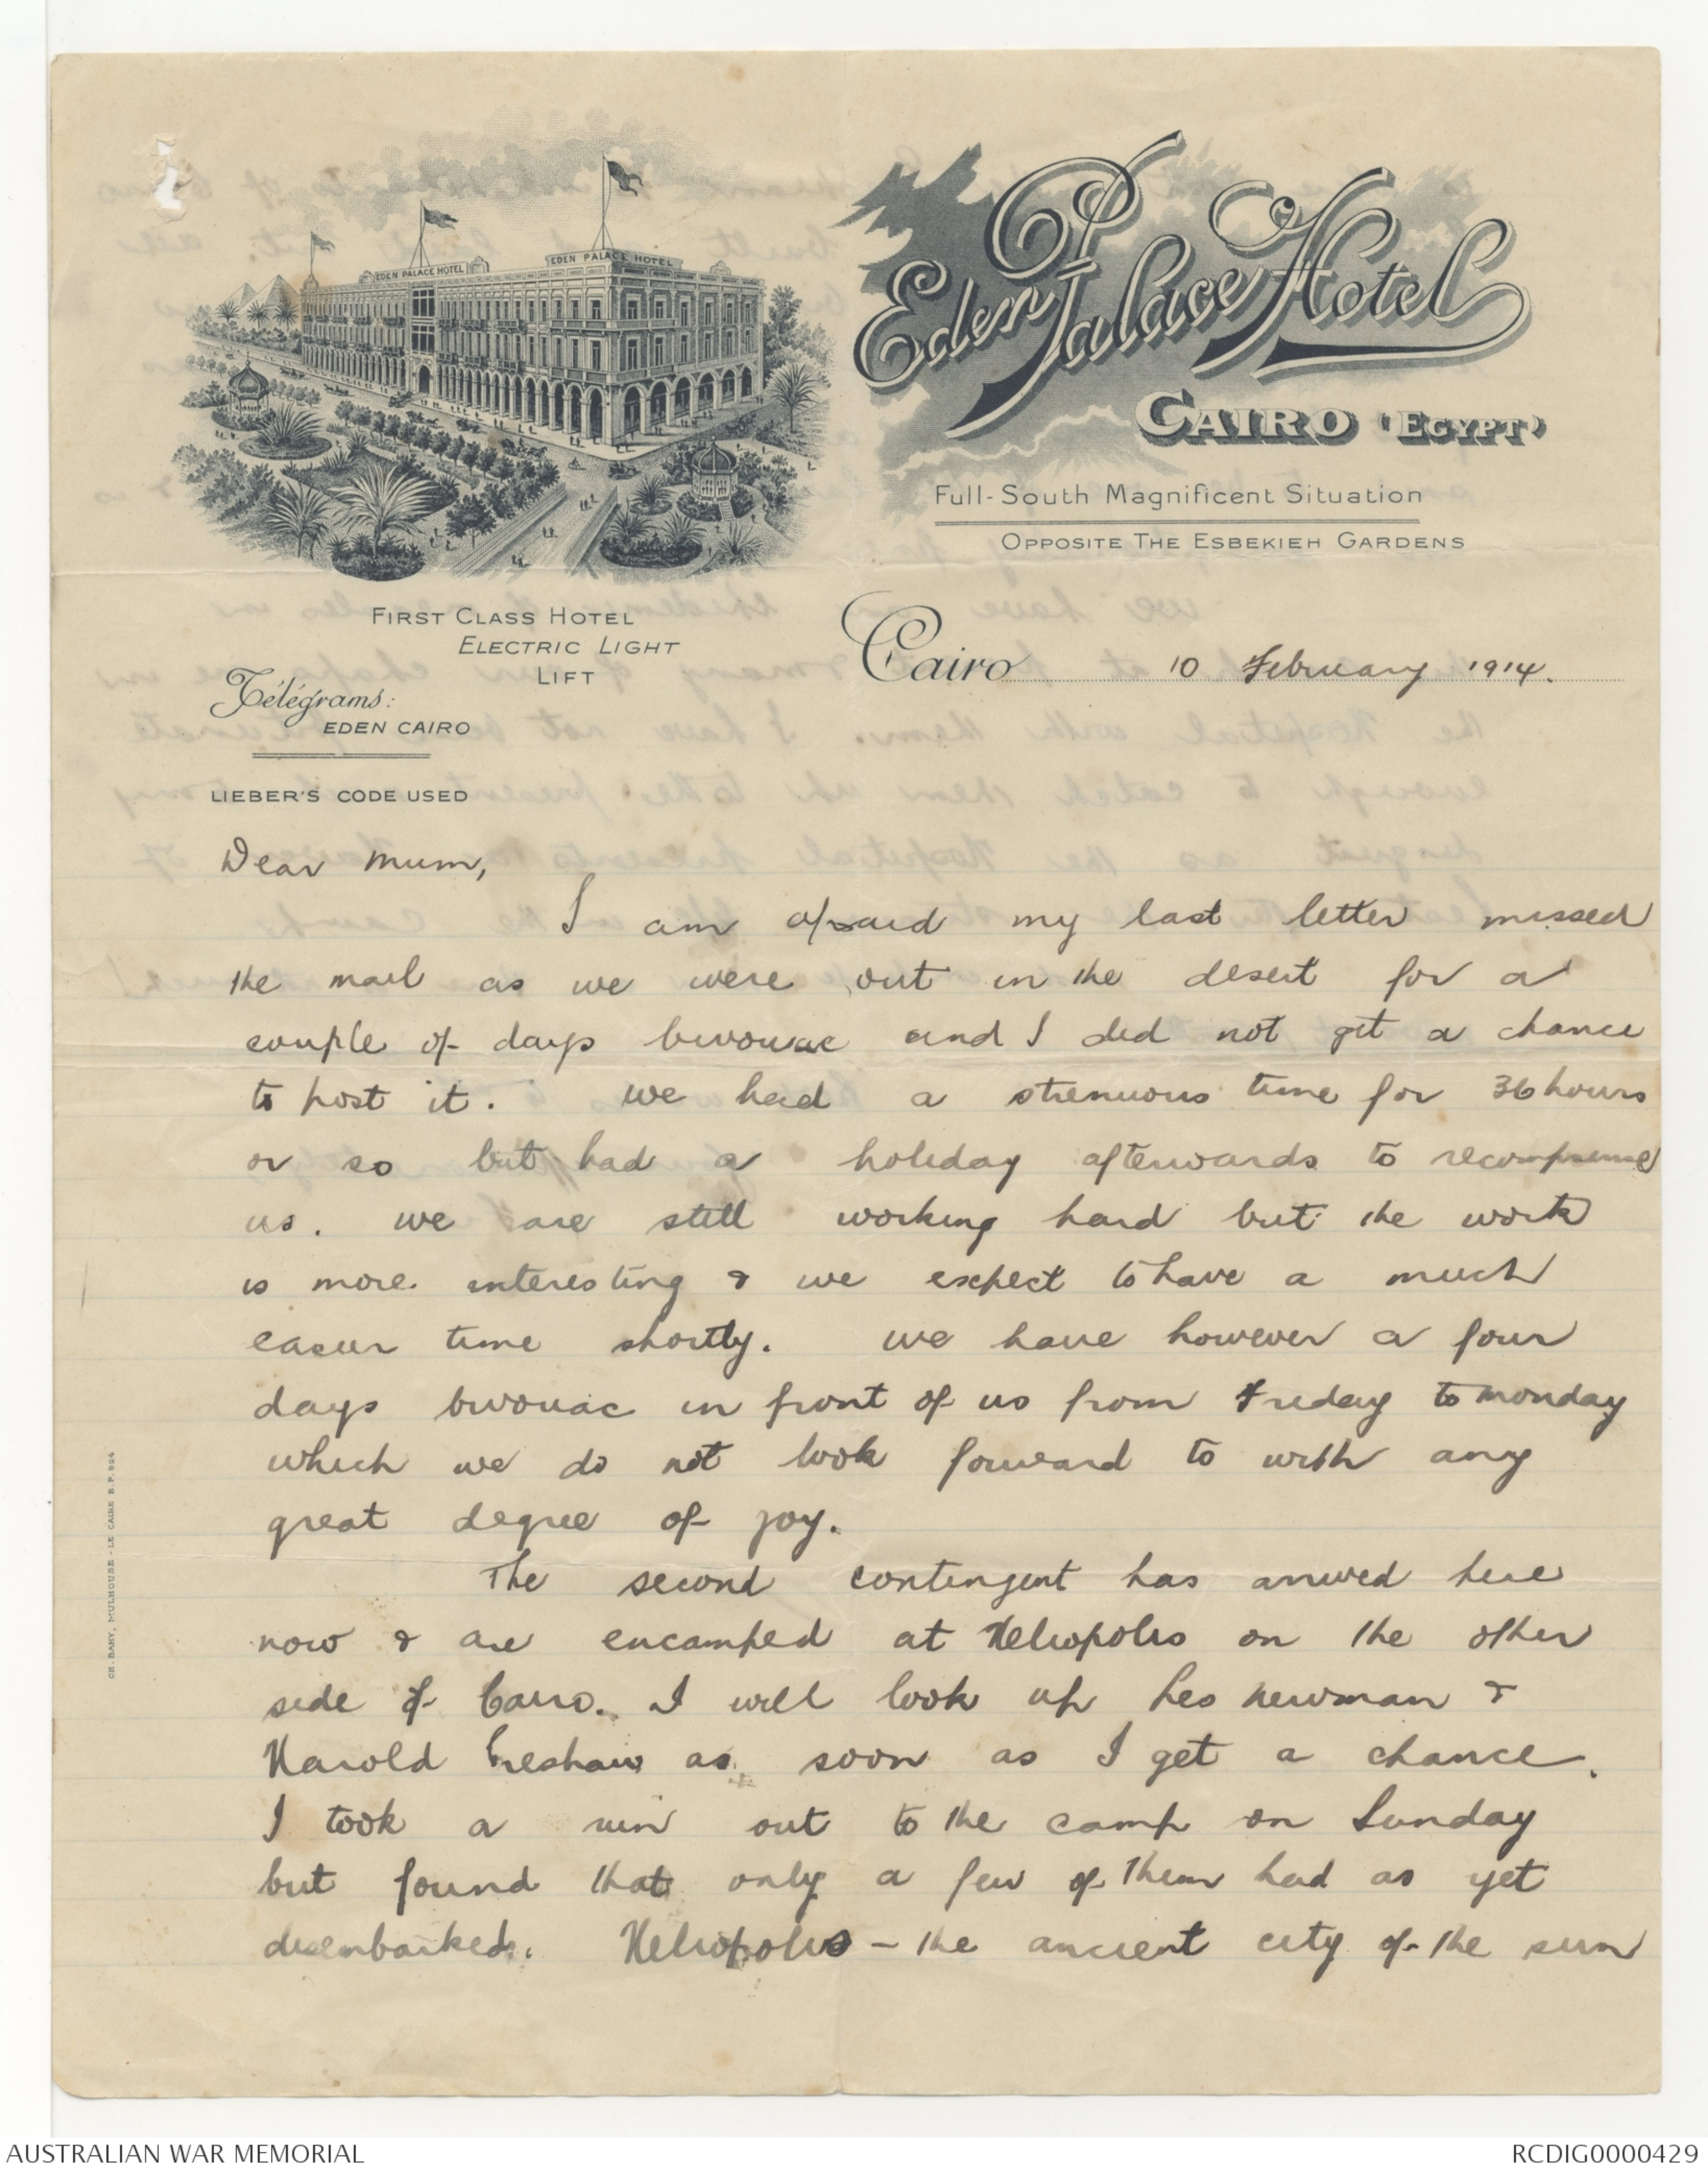 EDEN PALACE HOTEL
EDEN PALACE HOTEL
Eden Palace Hotel
CAIRO (EGYPT)
Full-South Magnificent Situation
OPPOSITE THE ESBEKIEH GARDENS
FIRST CLASS HOTEL
ELECTRIC LIGHT
LIFT
Télégrams:
EDEN CAIRO
LIEBER'S CODE USED
Cairo 10 February 1914.
Dear Mum,
I am afraid my last letter missed
the mail as we were out in the desert for a
couple of days bivouac and I did not get a chance
to post it. We had a strenuous time for 36 hours
or so but had a holiday afterwards to recompense
us. We are still working hard but the work
is more interesting & we expect to have a much
easier time shortly. We have however a four
days bivouac in front of us from Friday to Monday
which we do not look forward to with any
great degree of joy.
The second contingent has arrived here
now & are encamped at Heliopolis on the other
side of Cairo. I will look up Les Newman &
Harold as soon as I get a chance.
I took a run out to the camp on Sunday
but found that only a few of them had as yet
disembarked. Heliopolis - the ancient city of the sun
CH. BAHY, MULHOUSE - LE CAIRE B.P. 924
AUSTRALIAN WAR MEMORIAL
RCDIG0000429